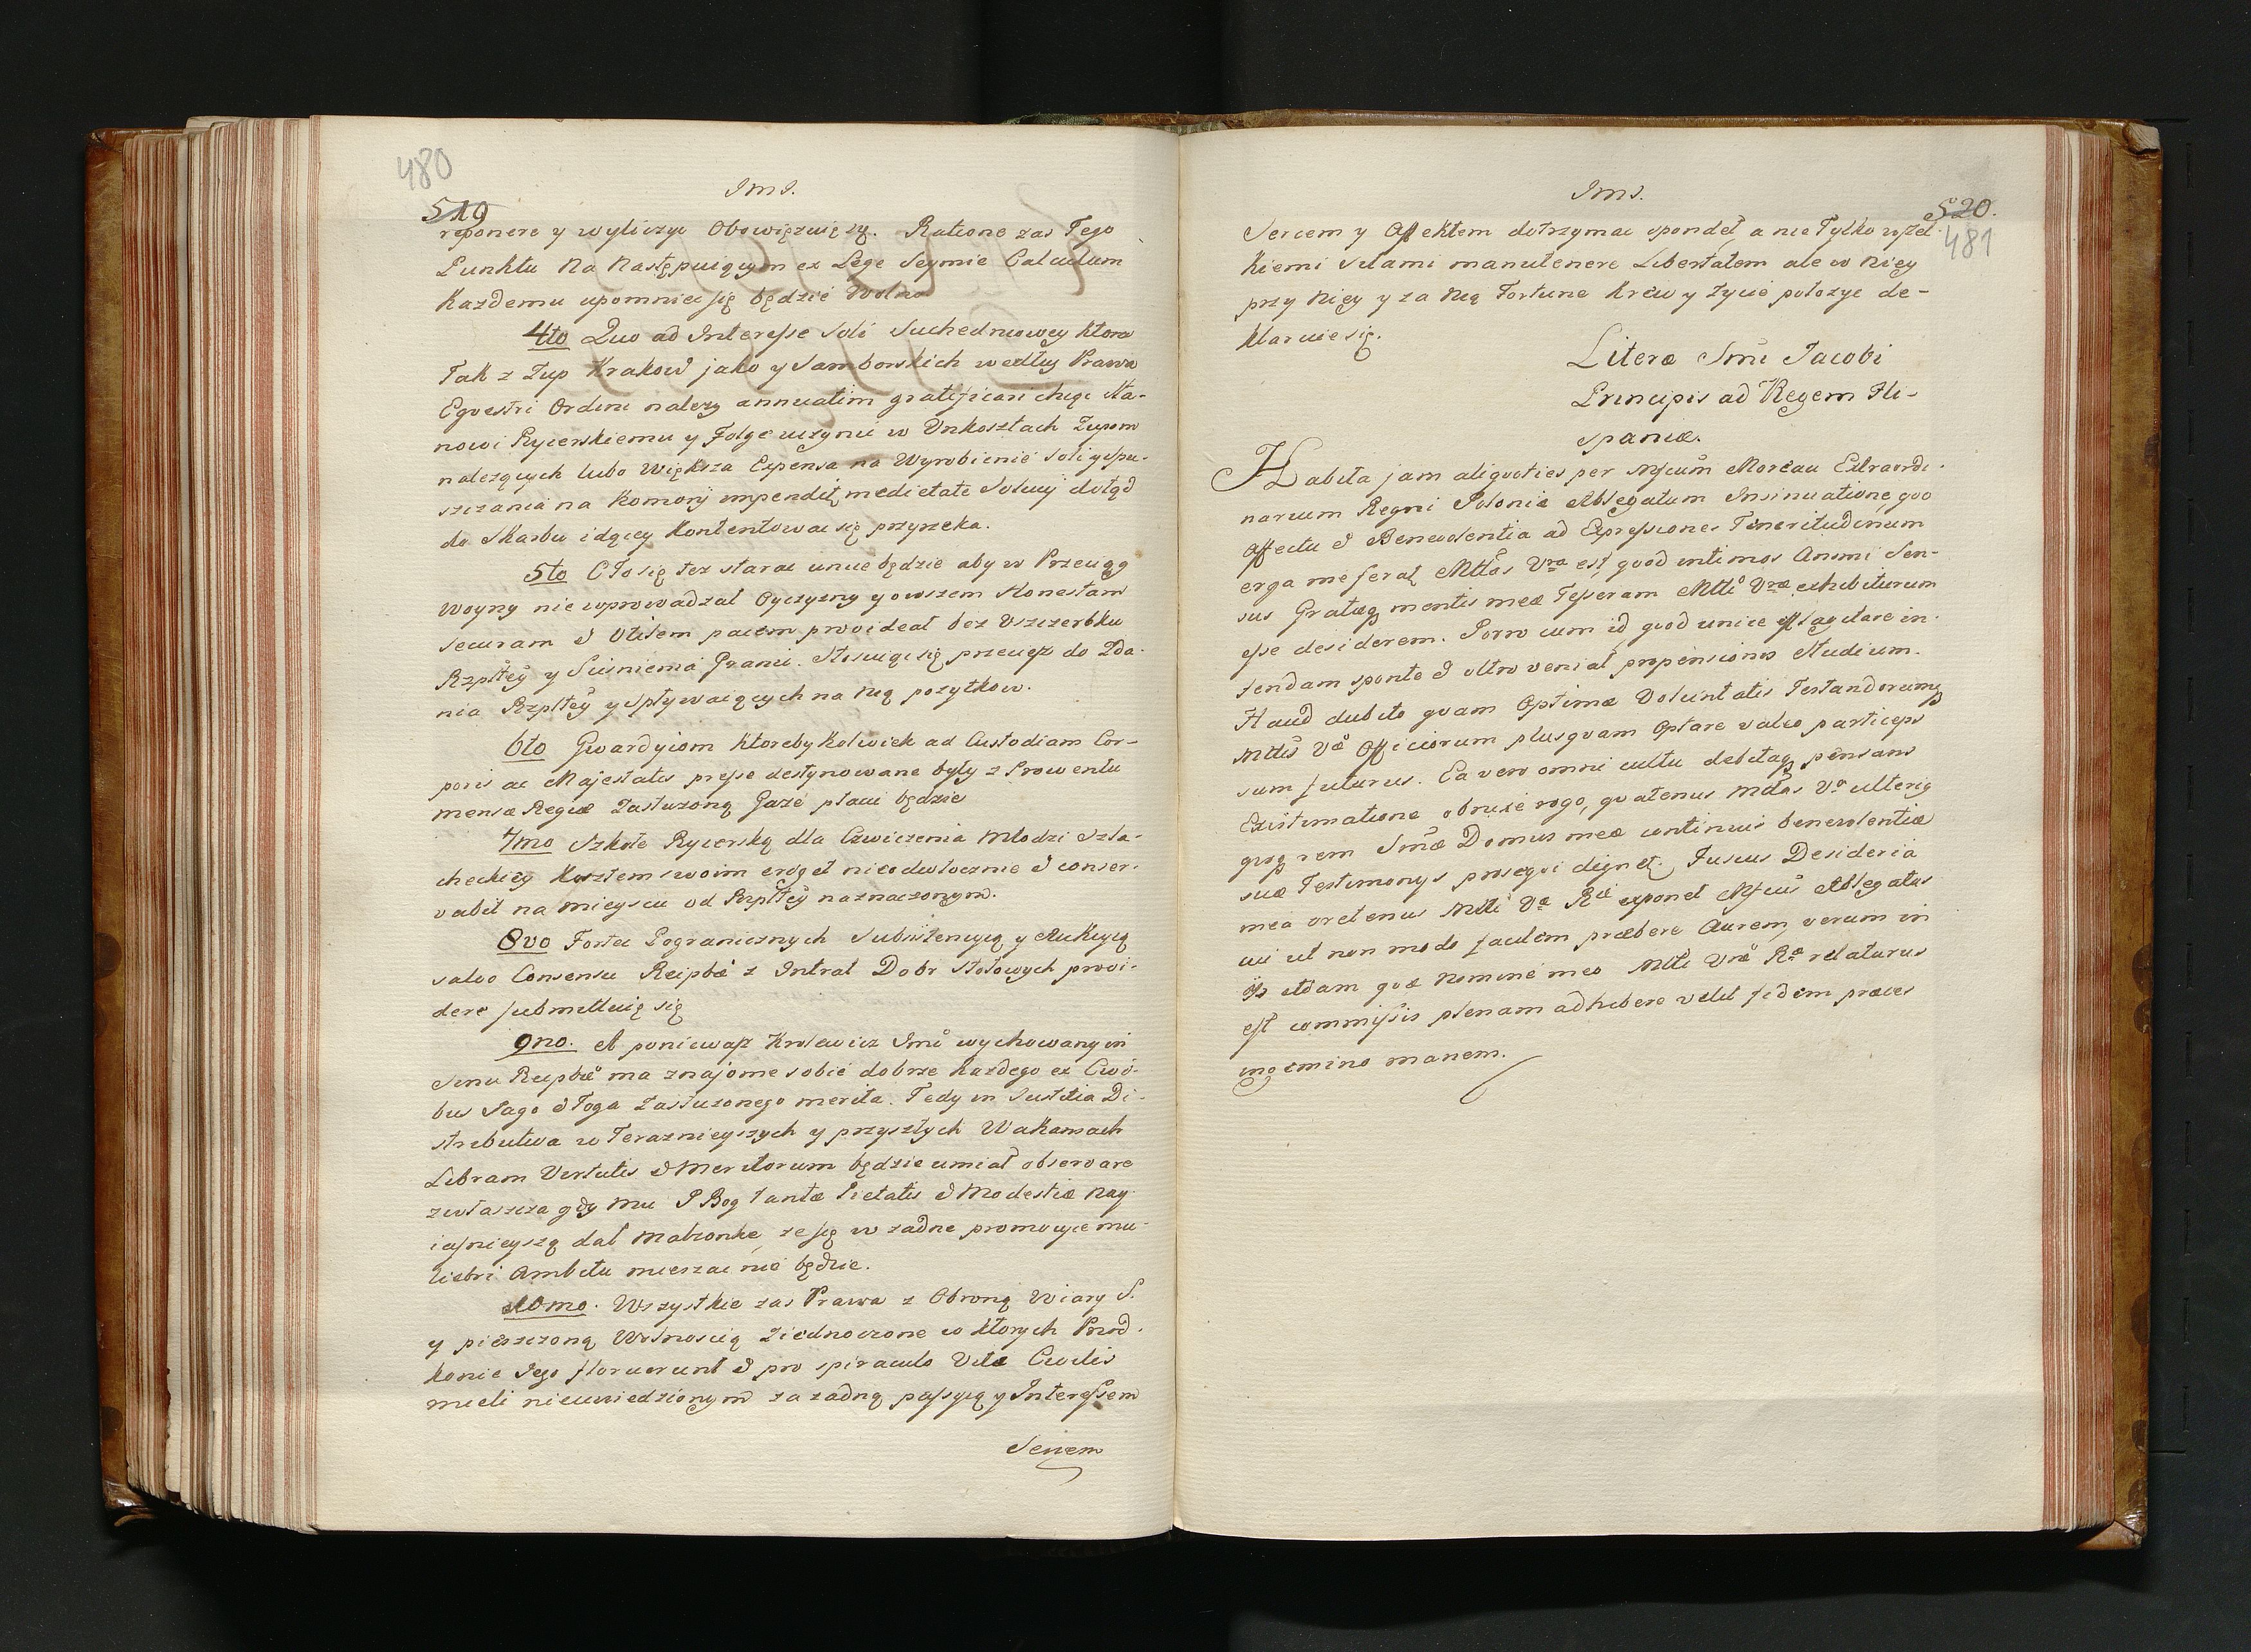 480
Jms.
519
reponere y wyliczyc Obowięzuię się. Ratione zas Tego
Punktu Na Następuiącym ex Lege Seymie Calculum
Kazdemu upomniec się będzie Wolno
4to Quo ad Interesse Soli Suchedniowey ktora
Tak z Zup Krakow jako y Samborskich według Prawa
Eqvestri Ordini nalezy annuatim gratificari chcąc Sta-
nowi Rycerskiemu y Folge uczynic w Unkosztach Zupom
nalezących lubo większa Expensa na Wyrobienie Soli y spu-
szczania na Komory impendit, medietate Solucij dotąd
do Skarbu idącey Kontentowac się przyrzeka.
5to Cto się tez starac unice będzie aby w Przeciąg
Woyny nie wprowadzał Oyczyzny y owszem Honestam
securam & Utilem pacem provideat bez Uszczerbku
Rzpltey y Scisnienia Granic. Stosuiąc się przeciez do Zda-
nia Rzpltey y Spływaiących na Nią pozytkow.
6to Gwardyiom ktorebykolwiek ad Custodiam Cor-
poris ac Majestatis presse destynowane były z Prowentu
mensæ Regiæ Zasłuzoną Gazę płaci będzie
7mo Szkołe Rycerską dla Cwiczenia Młodzi Szla-
checkiey Kosztem swoim eriget nieodwłocznie & conser-
vabit na mieyscu od Rzpltey naznaczonym.
8vo Fortec Pogranicznych Subsistencyą y Aukcyą
salvo Consensu Reipbæ z Intrat Dobr Stołowych provi-
dere submittuię się
9no. A poniewaz Krolewicz Jmc wychowany in
sinu Reipbæ ma znajome sobie dobrze Kazdego ex Civi-
bus Sago & Toga Zasłuzonego merita. Tedy in Justitia Di-
stributiva w Teraznieyszych y przyszłych Wakansach
Libram Virtutis & Meritorum będzie umiał observare
zwłaszcza gdy mu P Bog tantæ Pietatis & Modestiæ Nay-
iasnieyszą dał Małzonke, ze się w zadne promocye mu-
liebri Ambitu mieszac nie będzie.
10mo. Wszystkie zas Prawa z Obroną Wiary S.
y pieszczoną Wolnoscią Ziednoczone w ktorych Przod-
konie Jego floruerunt & pro spiraculo Vitæ Civilis
mieli nieuwiedzionym za zadną passyią y Interessem
Sercem
Jms.
520.
481
Sercem y Affektem dotrzymac spondet, a nie Tylko wszel-
kiemi siłami manutenere Libertatem ale w Niey
przy Niey y za Nią Fortune Krew y Zycie połozyc de-
klaruie się.
Literæ Smi Jacobi
Principis ad Regem Hi-
spaniæ.
Habita jam aliqvoties per Mfcum Moreau Extraordi-
narium Regni Poloniæ Ablegatum Insinuatione, qvo
Affectu & Benevolentia ad Expressiones Tineritudinum
erga me ferat Mttas Vra est, qvod intimos Animi Sen-
sus Gratæq mentis meæ Tesseram Mtti Vræ exhibiturum
esse desiderem. Porro cum id qvod unice efflagitare in-
tendam sponte & ultro veniat propensionis Studium.
Haud dubito qvam Optimæ Voluntatis Testandorumq
Mttis Væ Officiorum plusqvam Optare valeo particeps
sum futurus. Ea vero omni cultu debitaq pensans
Existimatione obnixe rogo, qvatenus Mttas Va ulterig
qvoq rem Smæ Domus meæ continuis benevolentiæ
suæ Testimonys proseqvi dignet. Fusius Desideria
mea oretenus Mtti Væ Riæ exponet Mfcus Ablegatus
cui ut non modo facilem præbere Aurem, verum in
ijs etiam qvæ Nomine meo Mtti Vræ Ræ relaturus
est commissis plenam adhibere velit fidem preces
ingemino manem.